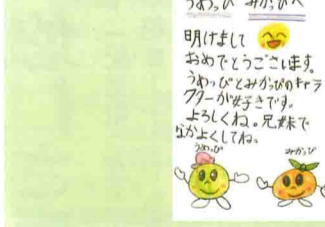 うめっぴ みかっぴへ
明けまして
おめでとうございます。
うめっぴとみかっぴのキャラ
クターが好きです。
よろしくね。兄妹で
なかよくしてね。
うめっぴ みかっぴ